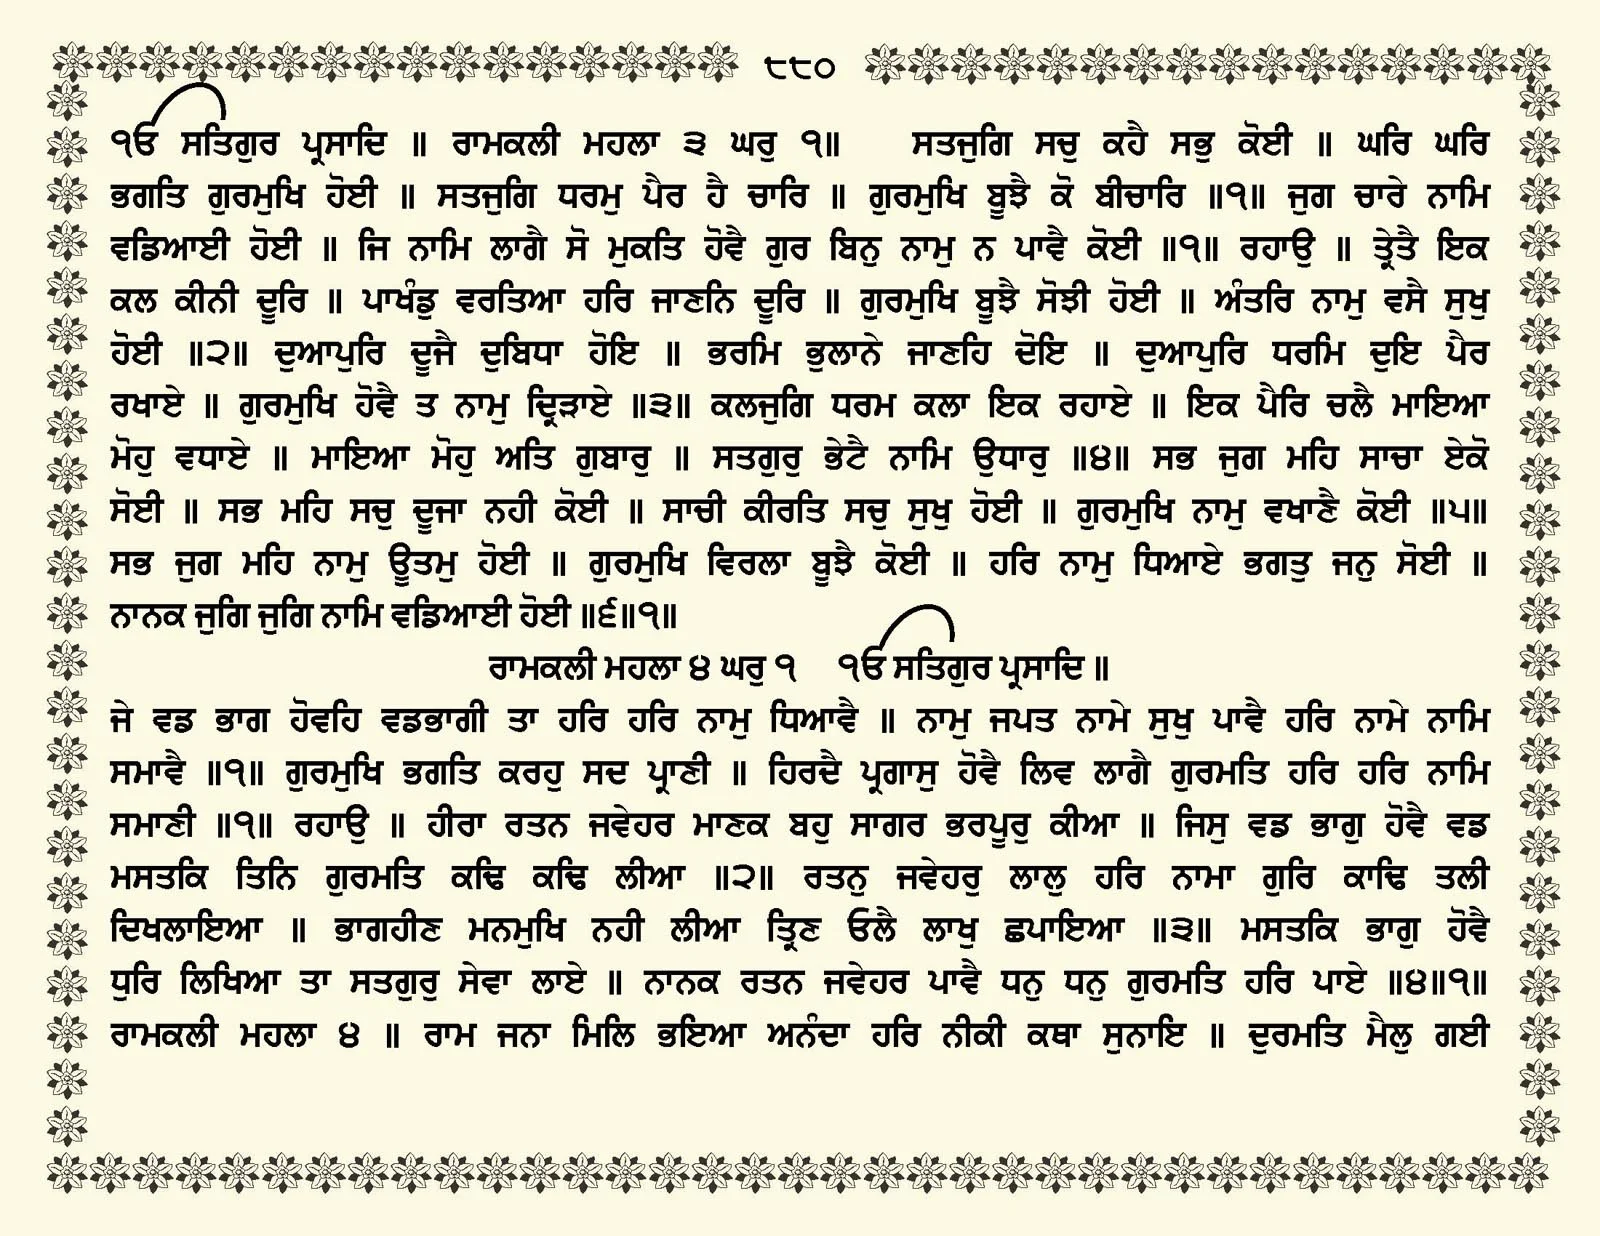 ੮੮੦
ੴ ਸਤਿਗੁਰ ਪ੍ਰਸਾਦਿ ॥ ਰਾਮਕਲੀ ਮਹਲਾ ੩ ਘਰੁ ੧॥ ਸਤਜੁਗਿ ਸਚੁ ਕਹੈ ਸਭੁ ਕੋਈ ॥ ਘਰਿ ਘਰਿ
ਭਗਤਿ ਗੁਰਮੁਖਿ ਹੋਈ ॥ ਸਤਜੁਗਿ ਧਰਮੁ ਪੈਰ ਹੈ ਚਾਰਿ ॥ ਗੁਰਮੁਖਿ ਬੂਝੈ ਕੋ ਬੀਚਾਰਿ ॥੧॥ ਜੁਗ ਚਾਰੇ ਨਾਮਿ
ਵਡਿਆਈ ਹੋਈ ॥ ਜਿ ਨਾਮਿ ਲਾਗੈ ਸੋ ਮੁਕਤਿ ਹੋਵੈ ਗੁਰ ਬਿਨੁ ਨਾਮੁ ਨ ਪਾਵੈ ਕੋਈ ॥੧॥ ਰਹਾਉ ॥ ਤ੍ਰੇਤੈ ਇਕ
ਕਲ ਕੀਨੀ ਦੂਰਿ ॥ ਪਾਖੰਡੁ ਵਰਤਿਆ ਹਰਿ ਜਾਣਨਿ ਦੂਰਿ ॥ ਗੁਰਮੁਖਿ ਬੂਝੈ ਸੋਝੀ ਹੋਈ ॥ ਅੰਤਰਿ ਨਾਮੁ ਵਸੈ ਸੁਖੁ
ਹੋਈ ॥੨॥ ਦੁਆਪੁਰਿ ਦੂਜੈ ਦੁਬਿਧਾ ਹੋਇ ॥ ਭਰਮਿ ਭੁਲਾਨੇ ਜਾਣਹਿ ਦੋਇ ॥ ਦੁਆਪੁਰਿ ਧਰਮਿ ਦੁਇ ਪੈਰ
ਰਖਾਏ ॥ ਗੁਰਮੁਖਿ ਹੋਵੈ ਤ ਨਾਮੁ ਦ੍ਰਿੜਾਏ ॥੩॥ ਕਲਜੁਗਿ ਧਰਮ ਕਲਾ ਇਕ ਰਹਾਏ ॥ ਇਕ ਪੈਰਿ ਚਲੈ ਮਾਇਆ
ਮੋਹੁ ਵਧਾਏ ॥ ਮਾਇਆ ਮੋਹੁ ਅਤਿ ਗੁਬਾਰੁ ॥ ਸਤਗੁਰੁ ਭੇਟੈ ਨਾਮਿ ਉਧਾਰੁ ॥੪॥ ਸਭ ਜੁਗ ਮਹਿ ਸਾਚਾ ਏਕੋ
ਸੋਈ ॥ ਸਭ ਮਹਿ ਸਚੁ ਦੂਜਾ ਨਹੀ ਕੋਈ ॥ ਸਾਚੀ ਕੀਰਤਿ ਸਚੁ ਸੁਖੁ ਹੋਈ ॥ ਗੁਰਮੁਖਿ ਨਾਮੁ ਵਖਾਣੈ ਕੋਈ ॥੫॥
ਸਭ ਜੁਗ ਮਹਿ ਨਾਮੁ ਊਤਮੁ ਹੋਈ ॥ ਗੁਰਮੁਖਿ ਵਿਰਲਾ ਬੂਝੈ ਕੋਈ ॥ ਹਰਿ ਨਾਮੁ ਧਿਆਏ ਭਗਤੁ ਜਨੁ ਸੋਈ ॥
ਨਾਨਕ ਜੁਗਿ ਜੁਗਿ ਨਾਮਿ ਵਡਿਆਈ ਹੋਈ ॥੬॥੧॥
ਰਾਮਕਲੀ ਮਹਲਾ ੪ ਘਰੁ ੧ ੴ ਸਤਿਗੁਰ ਪ੍ਰਸਾਦਿ ॥
ਜੇ ਵਡ ਭਾਗ ਹੋਵਹਿ ਵਡਭਾਗੀ ਤਾ ਹਰਿ ਹਰਿ ਨਾਮੁ ਧਿਆਵੈ ॥ ਨਾਮੁ ਜਪਤ ਨਾਮੇ ਸੁਖੁ ਪਾਵੈ ਹਰਿ ਨਾਮੇ ਨਾਮਿ
ਸਮਾਵੈ ॥੧॥ ਗੁਰਮੁਖਿ ਭਗਤਿ ਕਰਹੁ ਸਦ ਪ੍ਰਾਣੀ ॥ ਹਿਰਦੈ ਪ੍ਰਗਾਸੁ ਹੋਵੈ ਲਿਵ ਲਾਗੈ ਗੁਰਮਤਿ ਹਰਿ ਹਰਿ ਨਾਮਿ
ਸਮਾਣੀ ॥੧॥ ਰਹਾਉ ॥ ਹੀਰਾ ਰਤਨ ਜਵੇਹਰ ਮਾਣਕ ਬਹੁ ਸਾਗਰ ਭਰਪੂਰੁ ਕੀਆ ॥ ਜਿਸੁ ਵਡ ਭਾਗੁ ਹੋਵੈ ਵਡ
ਮਸਤਕਿ ਤਿਨਿ ਗੁਰਮਤਿ ਕਢਿ ਕਢਿ ਲੀਆ ॥੨॥ ਰਤਨੁ ਜਵੇਹਰੁ ਲਾਲੁ ਹਰਿ ਨਾਮਾ ਗੁਰਿ ਕਾਢਿ ਤਲੀ
ਦਿਖਲਾਇਆ ॥ ਭਾਗਹੀਣ ਮਨਮੁਖਿ ਨਹੀ ਲੀਆ ਤ੍ਰਿਣ ਓਲੈ ਲਾਖੁ ਛਪਾਇਆ ॥੩॥ ਮਸਤਕਿ ਭਾਗੁ ਹੋਵੈ
ਧੁਰਿ ਲਿਖਿਆ ਤਾ ਸਤਗੁਰੁ ਸੇਵਾ ਲਾਏ ॥ ਨਾਨਕ ਰਤਨ ਜਵੇਹਰ ਪਾਵੈ ਧਨੁ ਧਨੁ ਗੁਰਮਤਿ ਹਰਿ ਪਾਏ ॥੪॥੧॥
ਰਾਮਕਲੀ ਮਹਲਾ ੪ ॥ ਰਾਮ ਜਨਾ ਮਿਲਿ ਭਇਆ ਅਨੰਦਾ ਹਰਿ ਨੀਕੀ ਕਥਾ ਸੁਨਾਇ ॥ ਦੁਰਮਤਿ ਮੈਲੁ ਗਈ